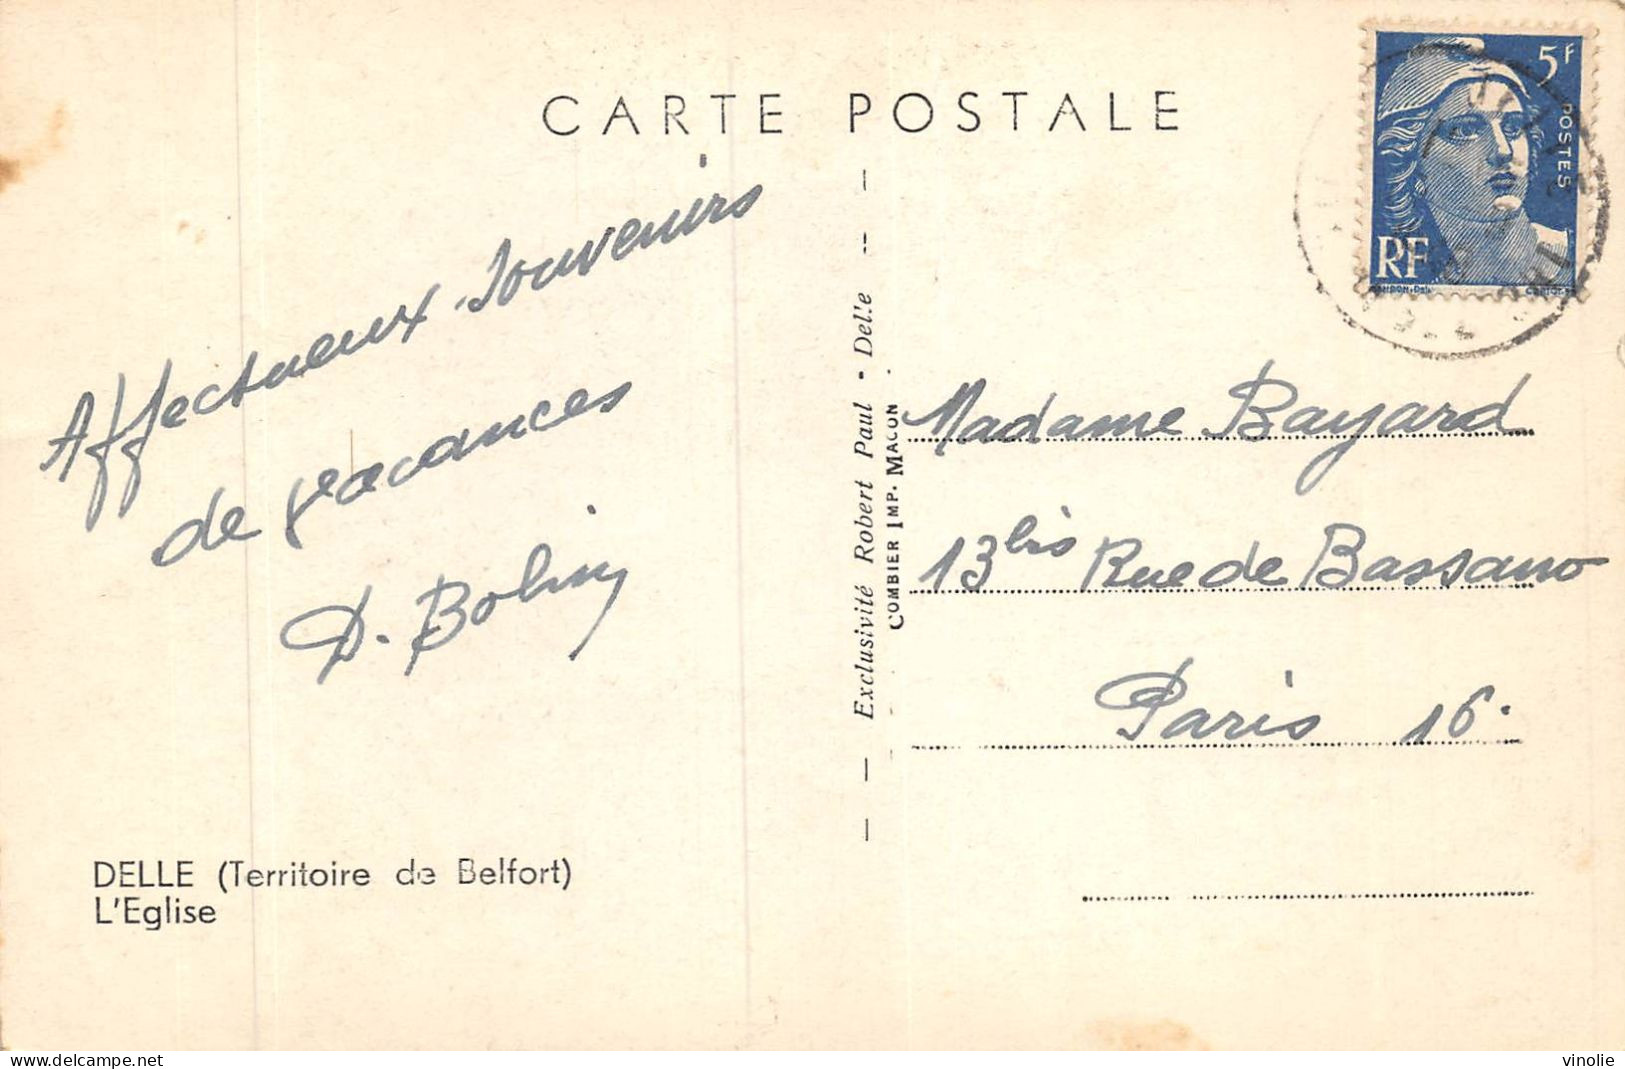 CARTE POSTALE
5F
POSTES
RF
Affectueux souvenirs
de vacances
Exclusivité Robert Paul - Delle
COMBIER IMP. MACON
Madame Bayard
13bis Rue de Bassano
Paris 16.
DELLE (Territoire de Belfort)
L'Eglise
www.delcampe.net
vinolie